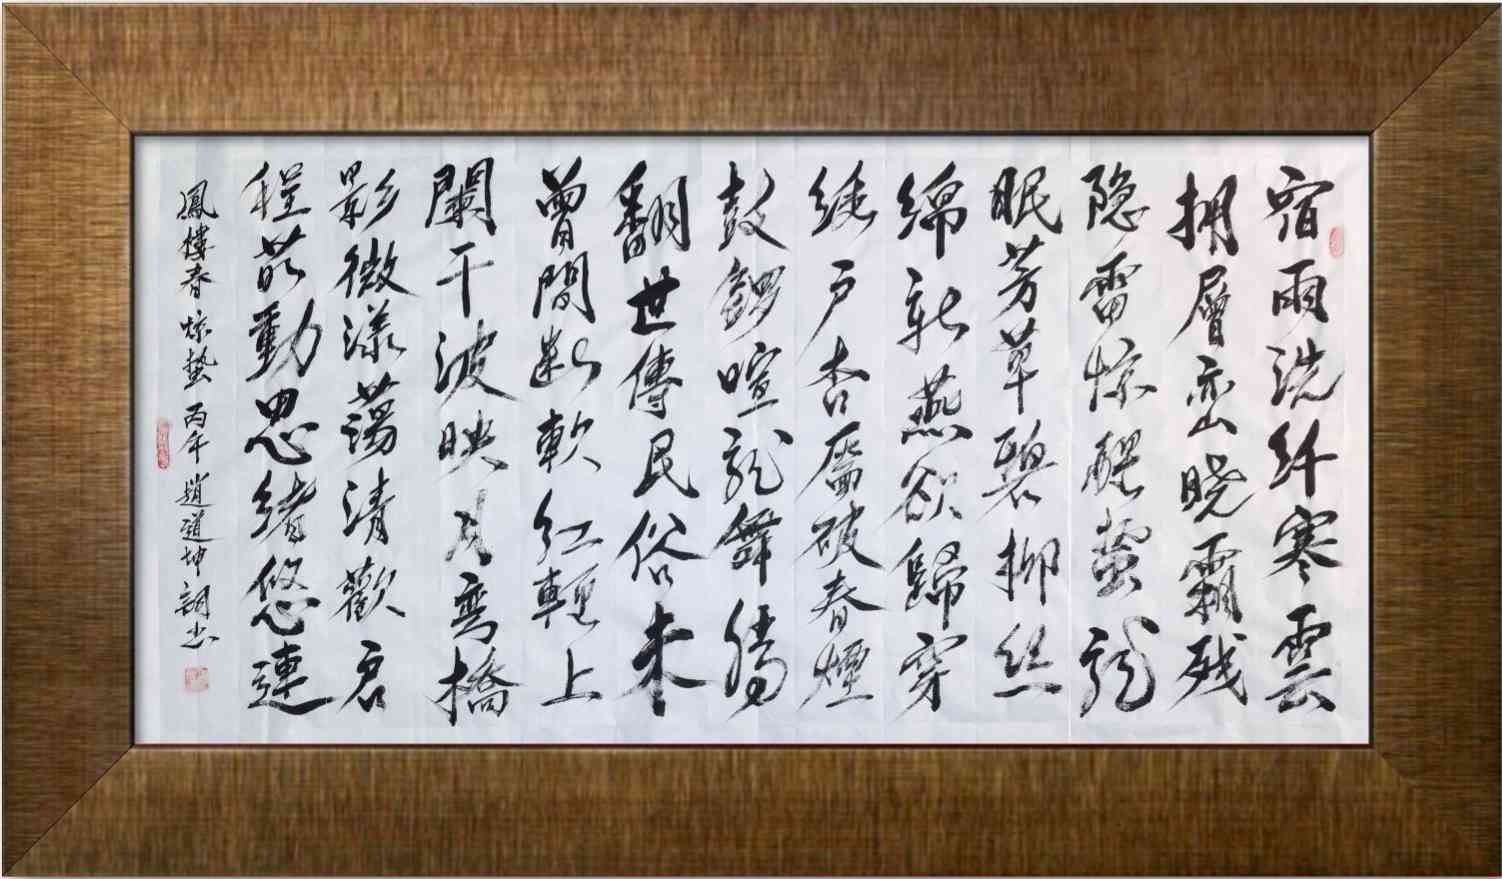 宿雨洗纤寒雲
拥層峦晓霜残
隐雷惊醒蛰龍
眠芳草碧柳丝
綿新燕欲歸穿
绕户杏靥破春煙
鼓鑼喧龍舞腾
翻世傳民俗未
曾間斷軟红輕上
闌干波映月弯橋
影微漾蕩清歡启
程動思緒悠連
鳳樓春 惊蛰 丙午 趙道坤 詞书